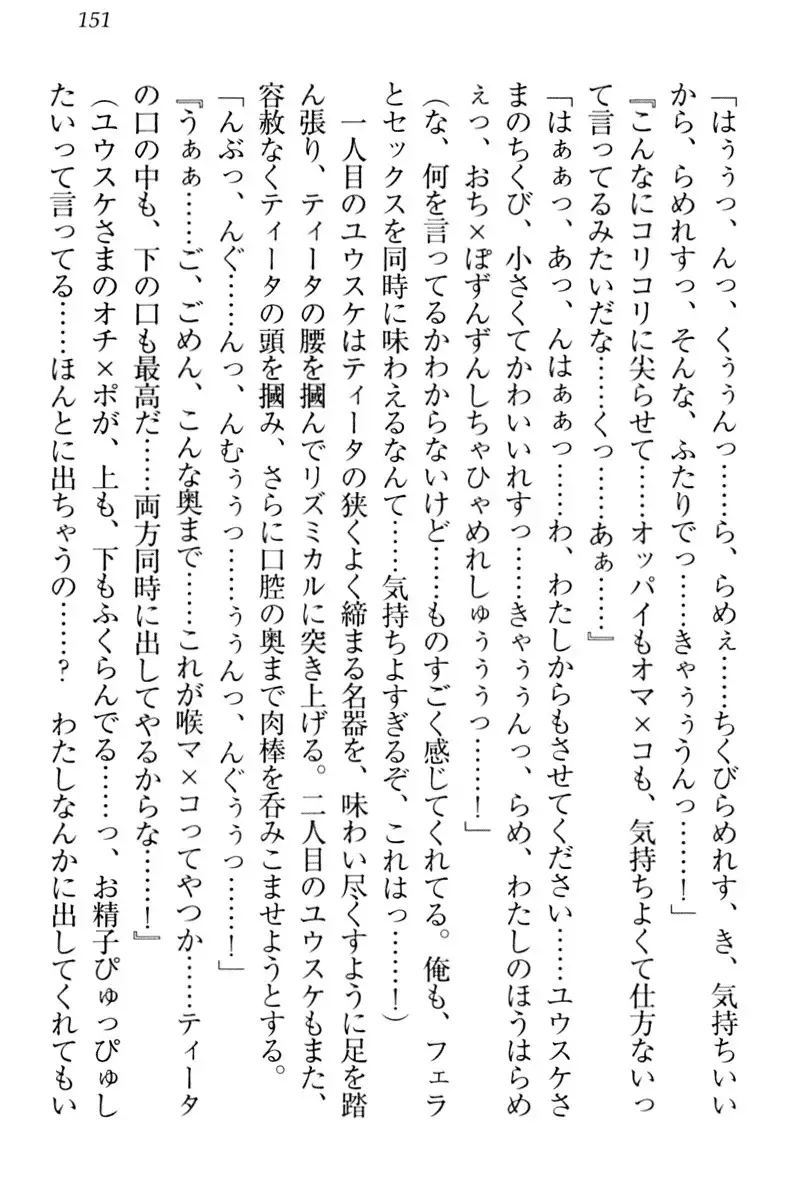 151
「はぅぅっ、んっ、くぅぅんっ……ら、らめぇ……ちくびらめれす、き、気持ちいい
から、らめれすっ、そんな、ふたりでっ……きゃぅぅうんっ……！」
『こんなにコリコリに尖らせて……オッパイもオマ×コも、気持ちよくて仕方ないっ
て言ってるみたいだな……くっ……あぁ……』
「はぁぁっ、あっ、んはぁぁっ……わ、わたしからもさせてください……ユウスケさ
まのちくび、小さくてかわいいれすっ……きゃぅぅんっ、らめ、わたしのほうはらめ
ぇっ、おち×ぽずんずんしちゃひゃめれしゅぅぅぅっ……！」
（な、何を言ってるかわからないけど……ものすごく感じてくれてる。俺も、フェラ
とセックスを同時に味わえるなんて……気持ちよすぎるぞ、これはっ……！）
一人目のユウスケはティータの狭くよく締まる名器を、味わい尽くすように足を踏
ん張り、ティータの腰を摑んでリズミカルに突き上げる。二人目のユウスケもまた、
容赦なくティータの頭を摑み、さらに口腔の奥まで肉棒を呑みこませようとする。
「んぶっ、んぐ……んっ、んむぅぅっ……ぅぅんっ、んぐぅぅっ……！」
『うぁぁ……ご、ごめん、こんな奥まで……これが喉マ×コってやつか……ティータ
の口の中も、下の口も最高だ……両方同時に出してやるからな……！』
（ユウスケさまのオチ×ポが、上も、下もふくらんでる……っ、お精子ぴゅっぴゅし
たいって言ってる……ほんとに出ちゃうの……？　わたしなんかに出してくれてもい